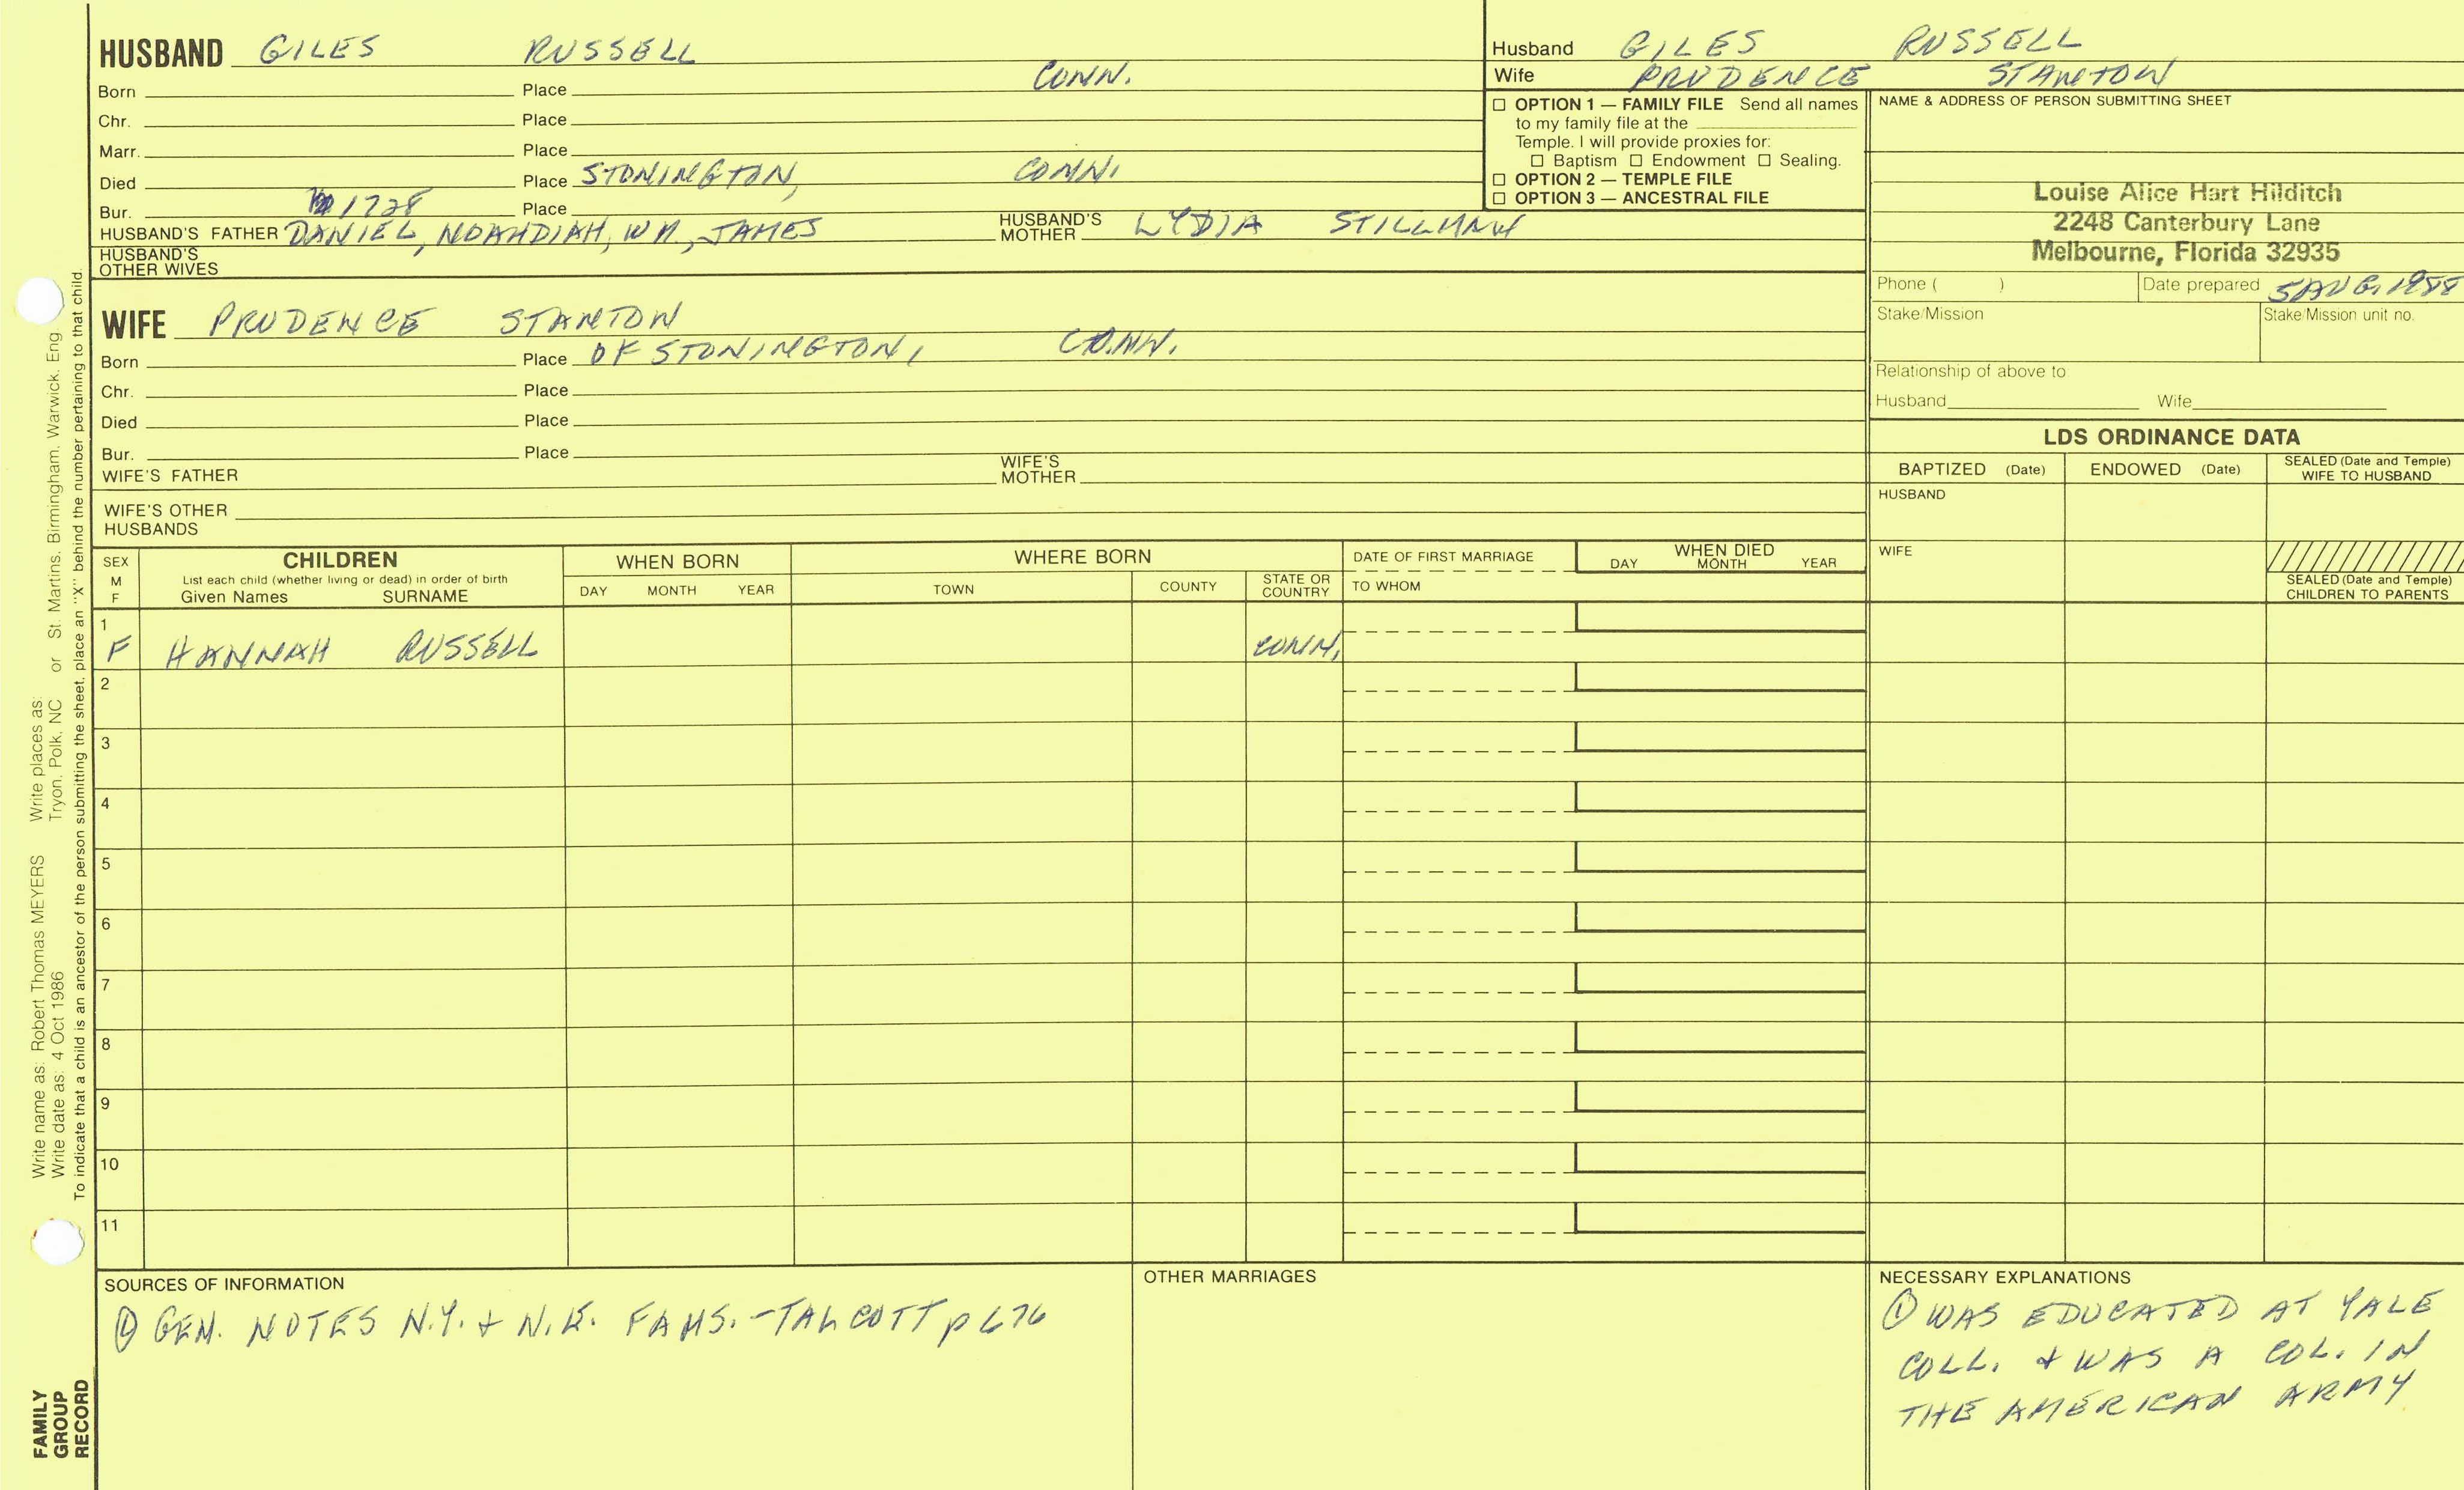 HUSBAND GILES RUSSELL
Born Place CONN.
Chr. Place
Marr. Place
Died Place STONINGTON, CONN.
Bur. 1728 Place
HUSBAND'S FATHER DANIEL, NOAHDIAH, WM, JAMES HUSBAND'S MOTHER LYDIA STILLMAN
HUSBAND'S OTHER WIVES
WIFE PRUDENCE STANTON
Born Place OF STONINGTON, CONN.
Chr. Place
Died Place
Bur. Place
WIFE'S FATHER WIFE'S MOTHER
WIFE'S OTHER HUSBANDS
Husband GILES RUSSELL
Wife PRUDENCE STANTON
☐ OPTION 1 — FAMILY FILE Send all names
to my family file at the
Temple. I will provide proxies for:
☐ Baptism ☐ Endowment ☐ Sealing.
☐ OPTION 2 — TEMPLE FILE
☐ OPTION 3 — ANCESTRAL FILE
NAME & ADDRESS OF PERSON SUBMITTING SHEET
Louise Alice Hart Hilditch
2248 Canterbury Lane
Melbourne, Florida 32935
Phone ( ) Date prepared 5 AUG. 1988
Stake/Mission Stake/Mission unit no.
Relationship of above to
Husband Wife
LDS ORDINANCE DATA
BAPTIZED (Date) ENDOWED (Date) SEALED (Date and Temple) WIFE TO HUSBAND
HUSBAND
WIFE
SEALED (Date and Temple) CHILDREN TO PARENTS
SEX M F
CHILDREN
List each child (whether living or dead) in order of birth
Given Names SURNAME
WHEN BORN
DAY MONTH YEAR
WHERE BORN
TOWN COUNTY STATE OR COUNTRY
DATE OF FIRST MARRIAGE
TO WHOM
WHEN DIED
DAY MONTH YEAR
1
F HANNAH RUSSELL CONN.
2
3
4
5
6
7
8
9
10
11
SOURCES OF INFORMATION
① GEN. NOTES N.Y. + N.E. FAMS. - TALCOTT p 676
OTHER MARRIAGES
NECESSARY EXPLANATIONS
① WAS EDUCATED AT YALE
COLL. + WAS A COL. IN
THE AMERICAN ARMY
Write name as: Robert Thomas MEYERS Write places as:
Write date as: 4 Oct 1986 Tryon, Polk, NC or St. Martins, Birmingham, Warwick, Eng.
To indicate that a child is an ancestor of the person submitting the sheet, place an "X" behind the number pertaining to that child.
FAMILY
GROUP
RECORD